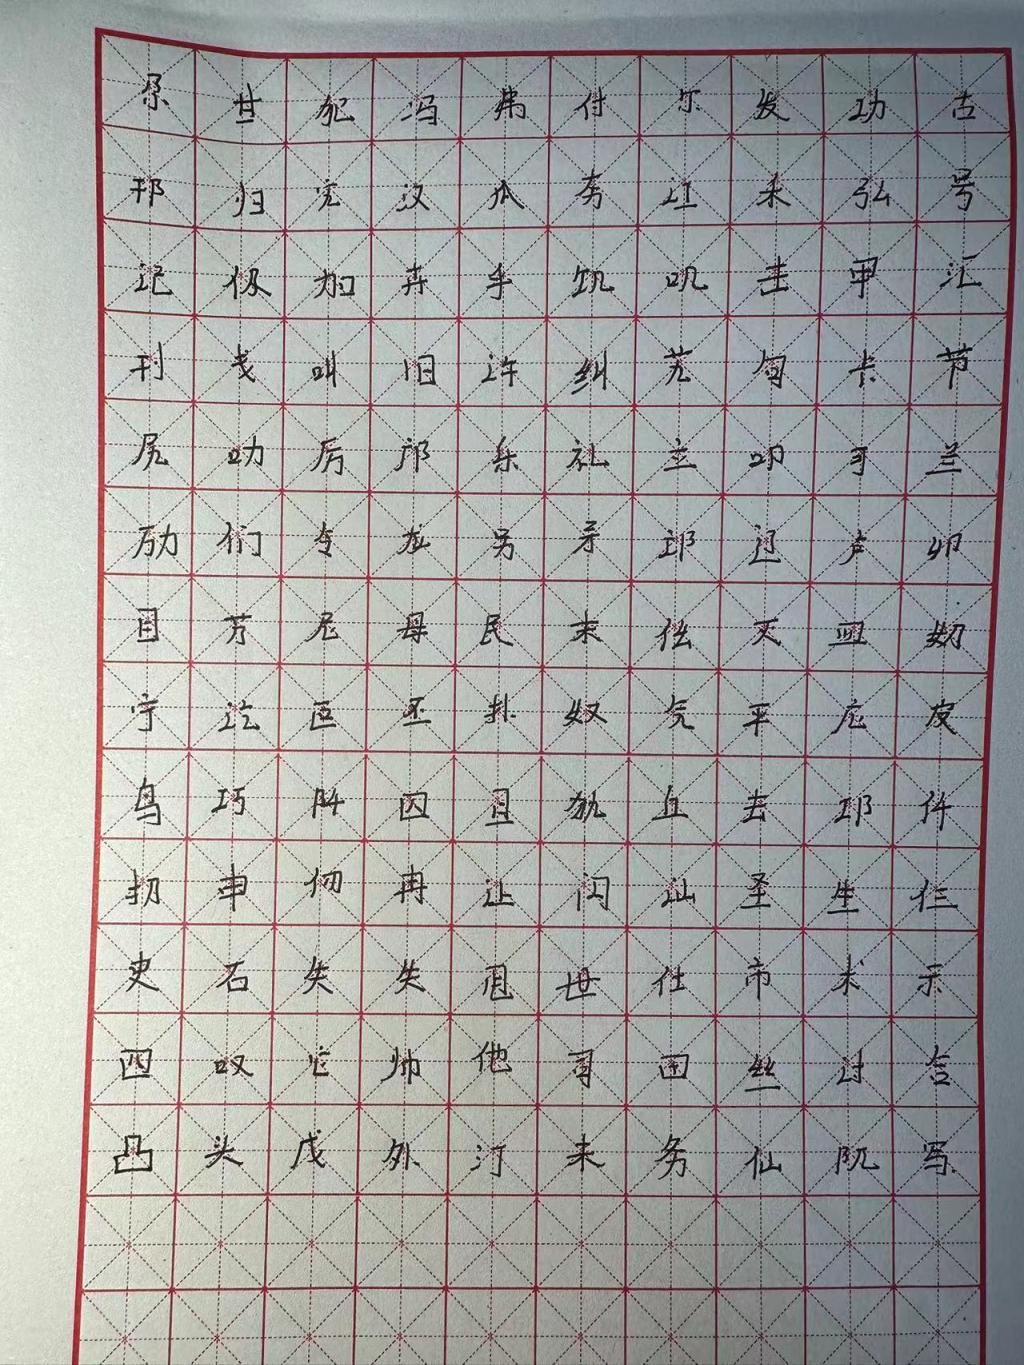 尕 甘 犯 冯 弗 付 尔 发 功 古
邗 归 宄 汉 瓜 夯 讧 禾 弘 号
记 仅 加 卉 乎 饥 叽 击 甲 汇
刊 戋 叫 旧 讦 纠 艽 句 卡 节
尻 叻 厉 邝 乐 礼 立 叩 可 兰
劢 们 令 龙 另 矛 邙 辽 卢 卯
目 艿 尼 母 民 末 仫 灭 皿 奶
宁 讫 叵 丕 扑 奴 气 平 庀 皮
鸟 巧 阡 囚 且 犰 丘 去 邛 仟
扔 申 仞 冉 让 闪 讪 圣 生 仨
史 石 失 失 甩 世 仕 市 术 示
四 叹 它 帅 他 司 田 丝 讨 台
凸 头 戊 外 汀 未 务 仙 阢 写